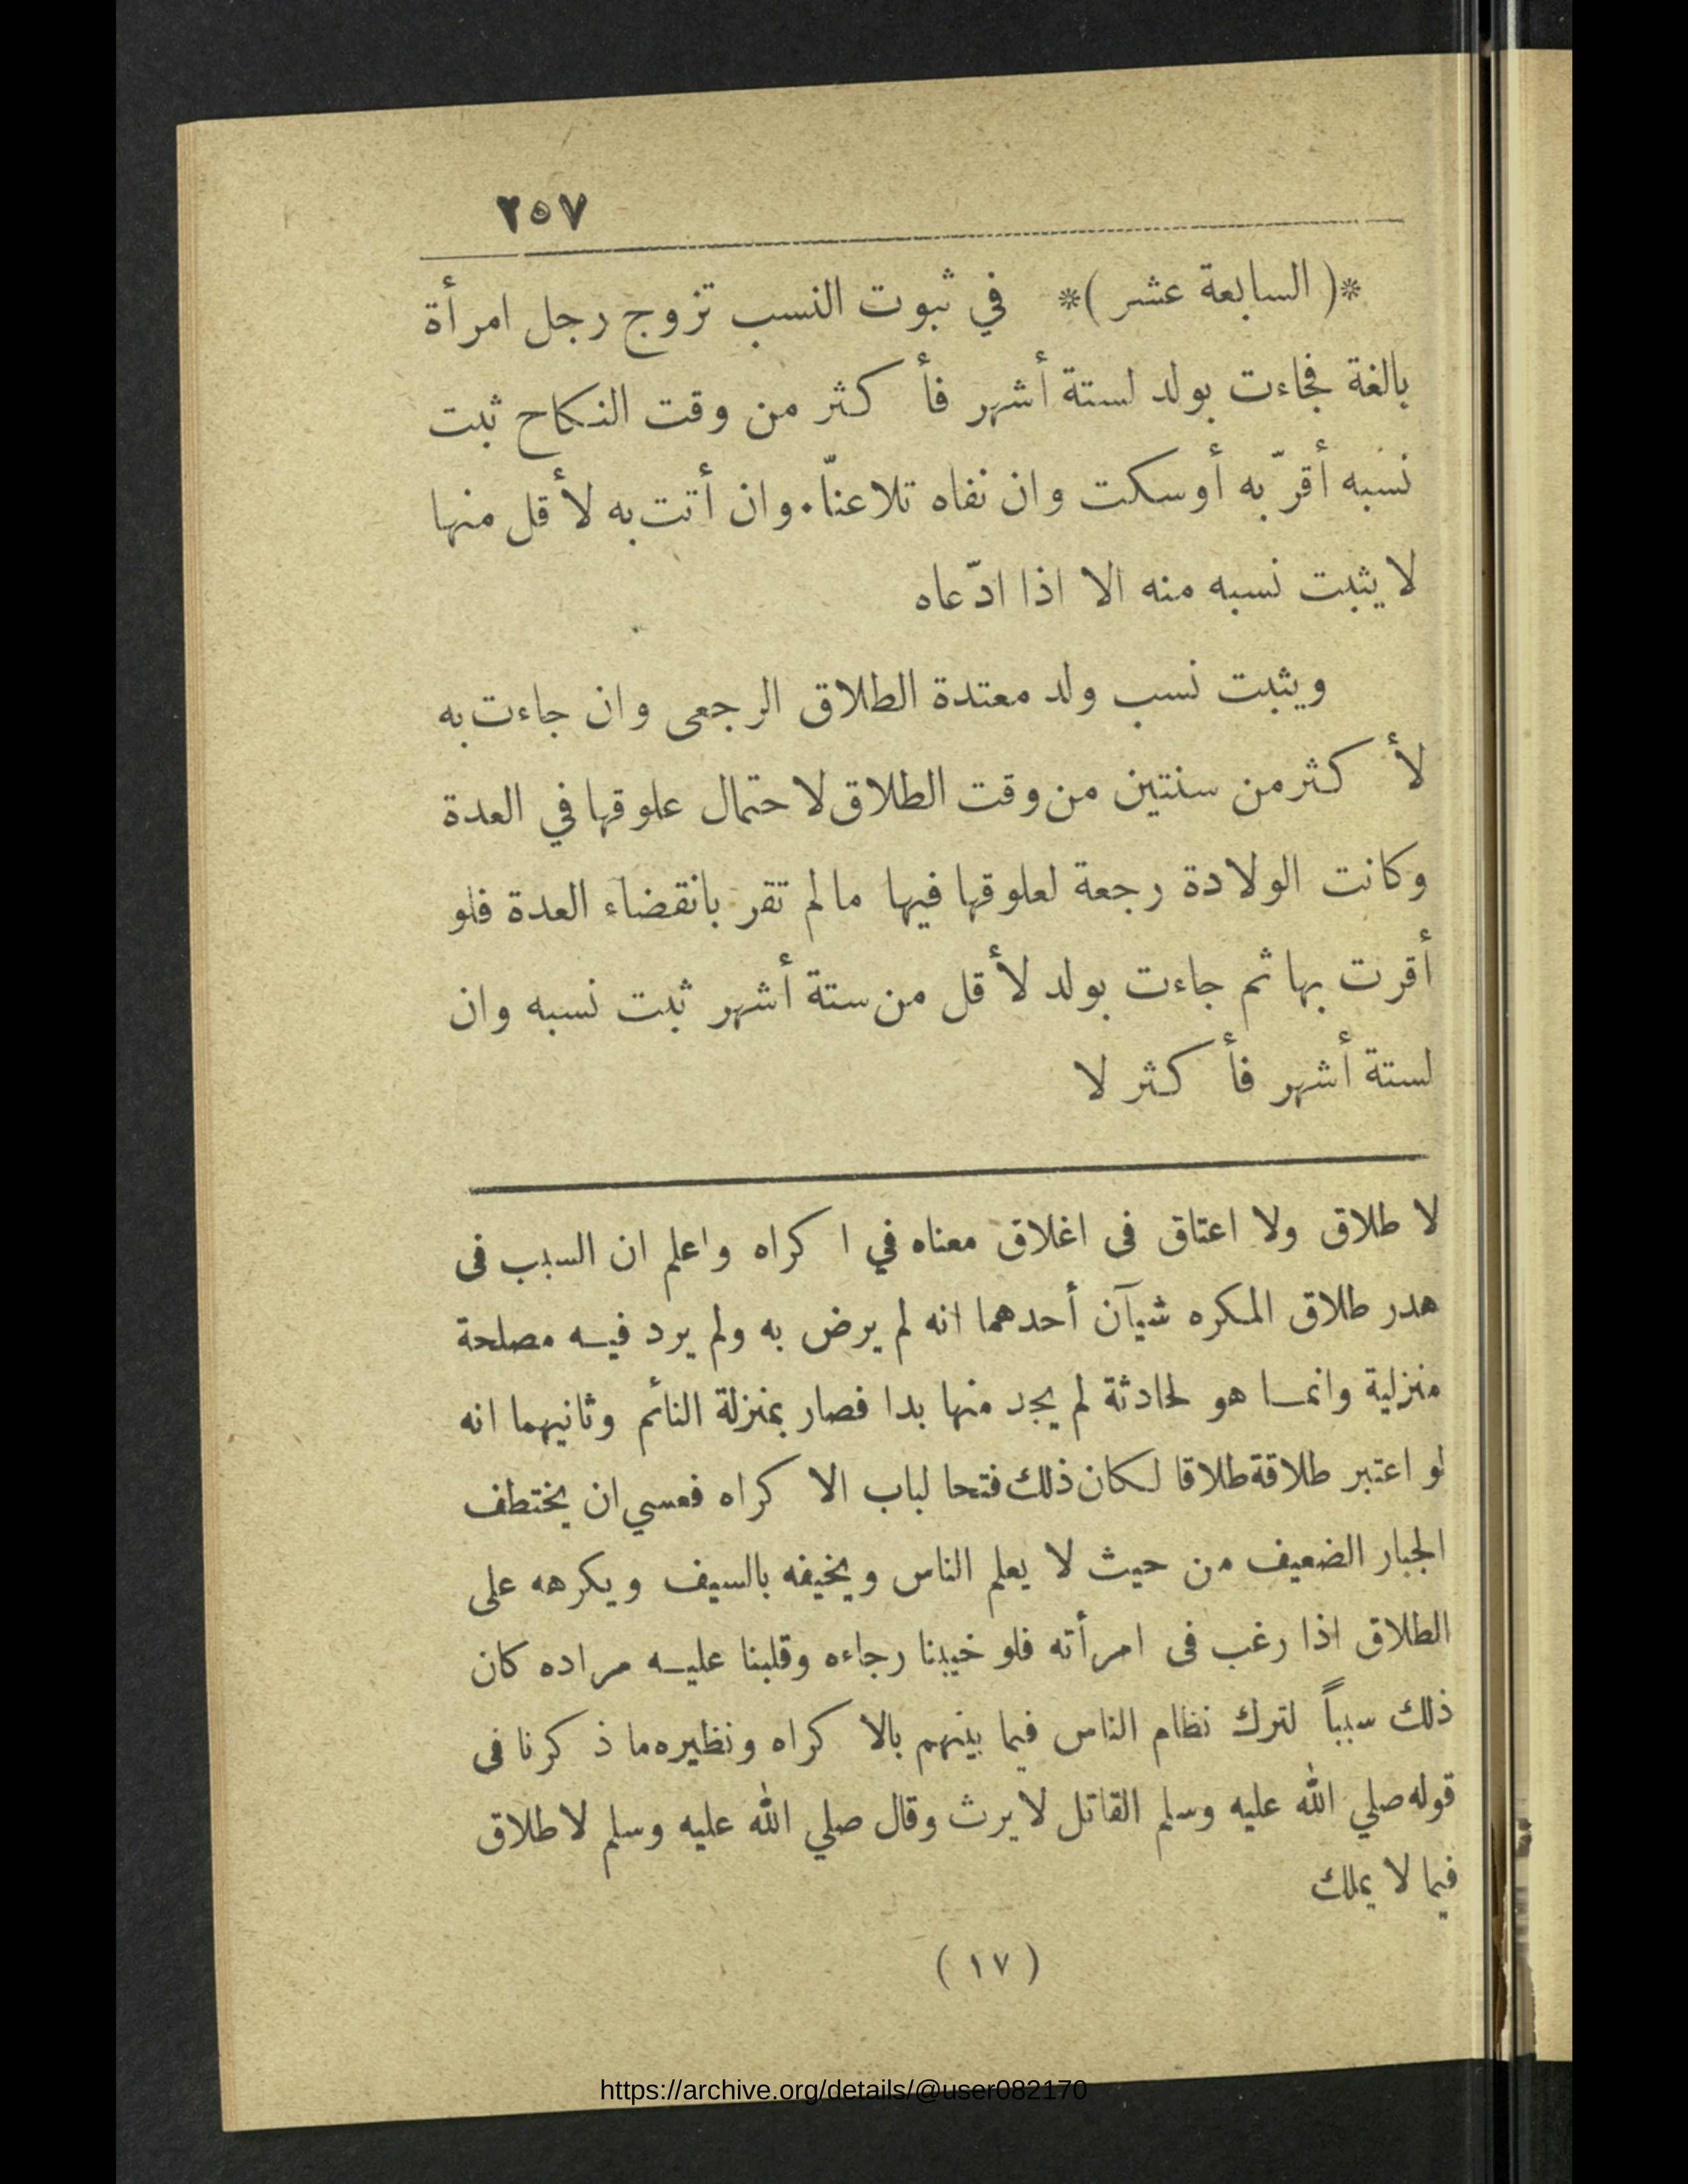 ٢٥٧
*( السابعة عشر )* في ثبوت النسب تزوج رجل امرأة
بالغة فجاءت بولد لستة أشهر فأكثر من وقت النكاح ثبت
نسبه أقرّ به أوسكت وان نفاه تلاعنّا. وان أتت به لأقل منها
لا يثبت نسبه منه الا اذا ادّعاه
ويثبت نسب ولد معتدة الطلاق الرجعى وان جاءت به
لأكثر من سنتين من وقت الطلاق لاحتمال علوقها في العدة
وكانت الولادة رجعة لعلوقها فيها مالم تقر بانقضاء العدة فلو
أقرت بها ثم جاءت بولد لأقل من ستة أشهر ثبت نسبه وان
لستة أشهر فأكثر لا
لا طلاق ولا اعتاق فى اغلاق معناه في اكراه واعلم ان السبب فى
هدر طلاق المكره شيآن أحدهما انه لم يرض به ولم يرد فيه مصلحة
منزلية وانما هو لحادثة لم يجد منها بدا فصار بمنزلة النائم وثانيهما انه
لو اعتبر طلاقة طلاقا لكان ذلك فتحا لباب الاكراه فعسي ان يختطف
الجبار الضعيف من حيث لا يعلم الناس ويخيفه بالسيف ويكرهه على
الطلاق اذا رغب فى امرأته فلو خيبنا رجاءه وقلبنا عليه مراده كان
ذلك سبباً لترك نظام الناس فيما بينهم بالاكراه ونظيره ما ذكرنا فى
قوله صلي الله عليه وسلم القاتل لا يرث وقال صلي الله عليه وسلم لا طلاق
فيما لا يملك
( ١٧ )
https://archive.org/details/@user082170